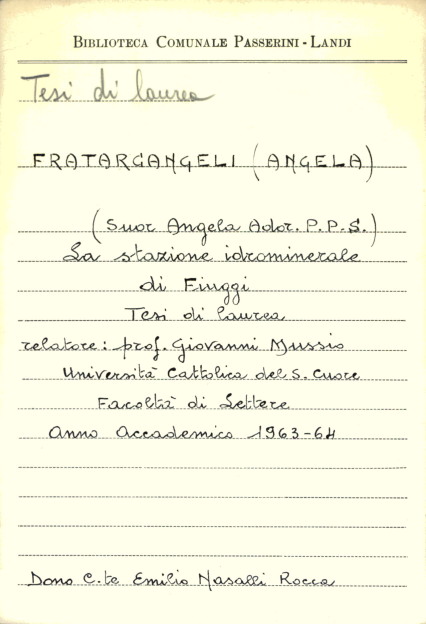 BIBLIOTECA COMUNALE PASSERINI-LANDI
Tesi di laurea
FRATARCANGELI (ANGELA)
(Suor Angela Ador. P.P.S.)
La stazione idrominerale
di Fiuggi
Tesi di laurea
relatore: prof. Giovanni Mussio
Università Cattolica del S. Cuore
Facoltà di Lettere
Anno Accademico 1963-64
Dono C.te Emilio Nasalli Rocca